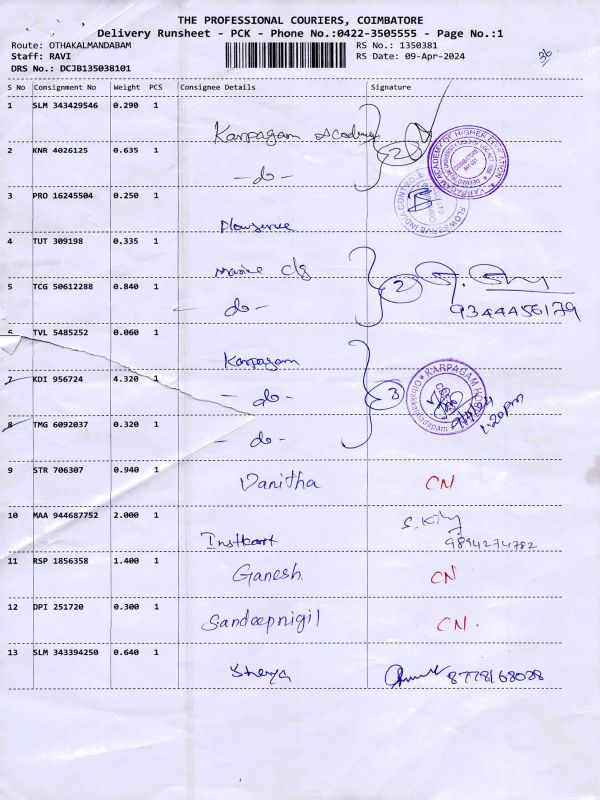 THE PROFESSIONAL COURIERS, COIMBATORE
Delivery Runsheet - PCK - Phone No.:0422-3505555 - Page No.:1
Route: OTHAKALMANDABAM RS No.: 1350381
Staff: RAVI RS Date: 09-Apr-2024
DRS No.: DCJB135038101
S No Consignment No Weight PCS Consignee Details Signature
1 SLM 343429546 0.290 1 Karpagam Academy 2
2 KNR 4026125 0.635 1 - do -
3 PRO 16245504 0.250 1 Flowserve
4 TUT 309198 0.335 1
5 TCG 50612288 0.840 1 - do - 2
9344456179
6 TVL 5485252 0.060 1 Karpagam
7 KDI 956724 4.320 1 - do - 3
8 TMG 6092037 0.320 1 - do - 1.20pm
9 STR 706307 0.940 1 Vanitha CN
10 MAA 944687752 2.000 1 Instkart 9894274782
11 RSP 1856358 1.400 1 Ganesh CN
12 DPI 251720 0.300 1 Sandeepnigil CN.
13 SLM 343394250 0.640 1 Sherya 8778168028
KARPAGAM ACADEMY OF HIGHER EDUCATION
FLOWSERVE INDIA CONTROLS
KARPAGAM
Othakkalmandapam